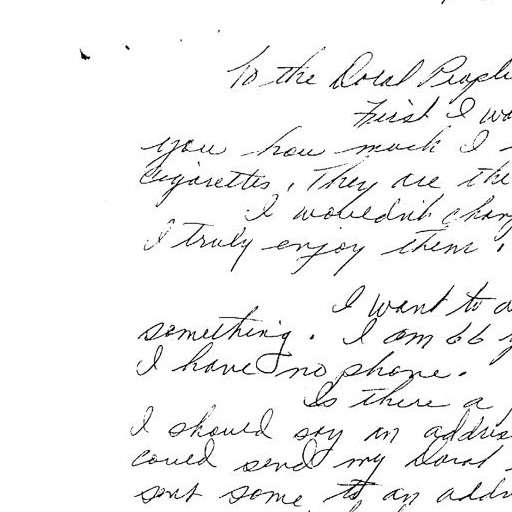 To the Doral People
First I wa
you how much I
Cigarettes, They are the
I wouldn't chang
I truly enjoy them.
I want to a
something. I am 66 y
I have no phone.
Is there a
I should say an addres
could send my Doral
sent some to an addr